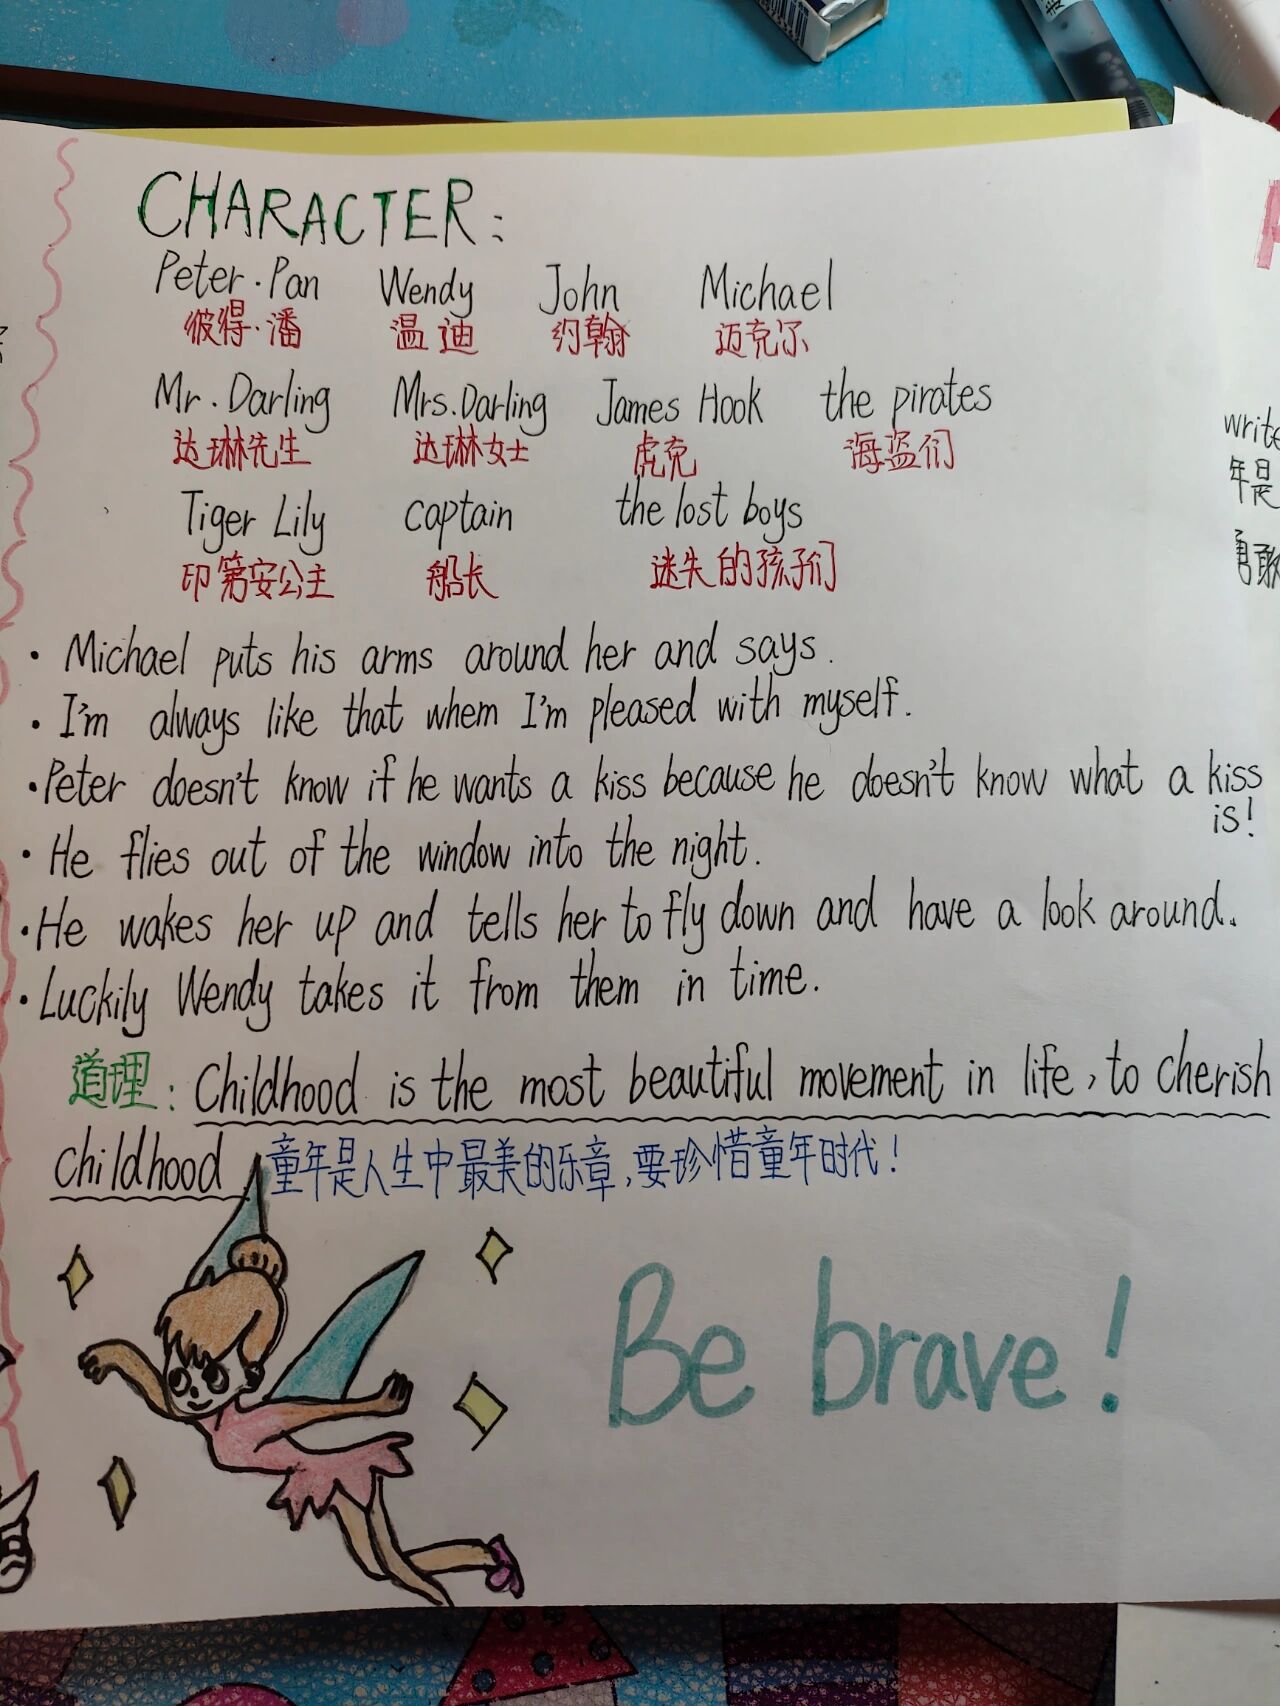 CHARACTER:
Peter·Pan Wendy John Michael
彼得·潘 温迪 约翰 迈克尔
Mr.Darling Mrs.Darling James Hook the pirates
达琳先生 达琳女士 虎克 海盗们
Tiger Lily captain the lost boys
印第安公主 船长 迷失的孩子们
· Michael puts his arms around her and says.
· I'm always like that whem I'm pleased with myself.
·Peter doesn't know if he wants a kiss because he doesn't know what a kiss
is!
· He flies out of the window into the night.
·He wakes her up and tells her to fly down and have a look around.
·Luckily Wendy takes it from them in time.
道理: Childhood is the most beautiful movement in life, to cherish
childhood 童年是人生中最美的乐章,要珍惜童年时代!
Be brave!
write
年是
勇敢